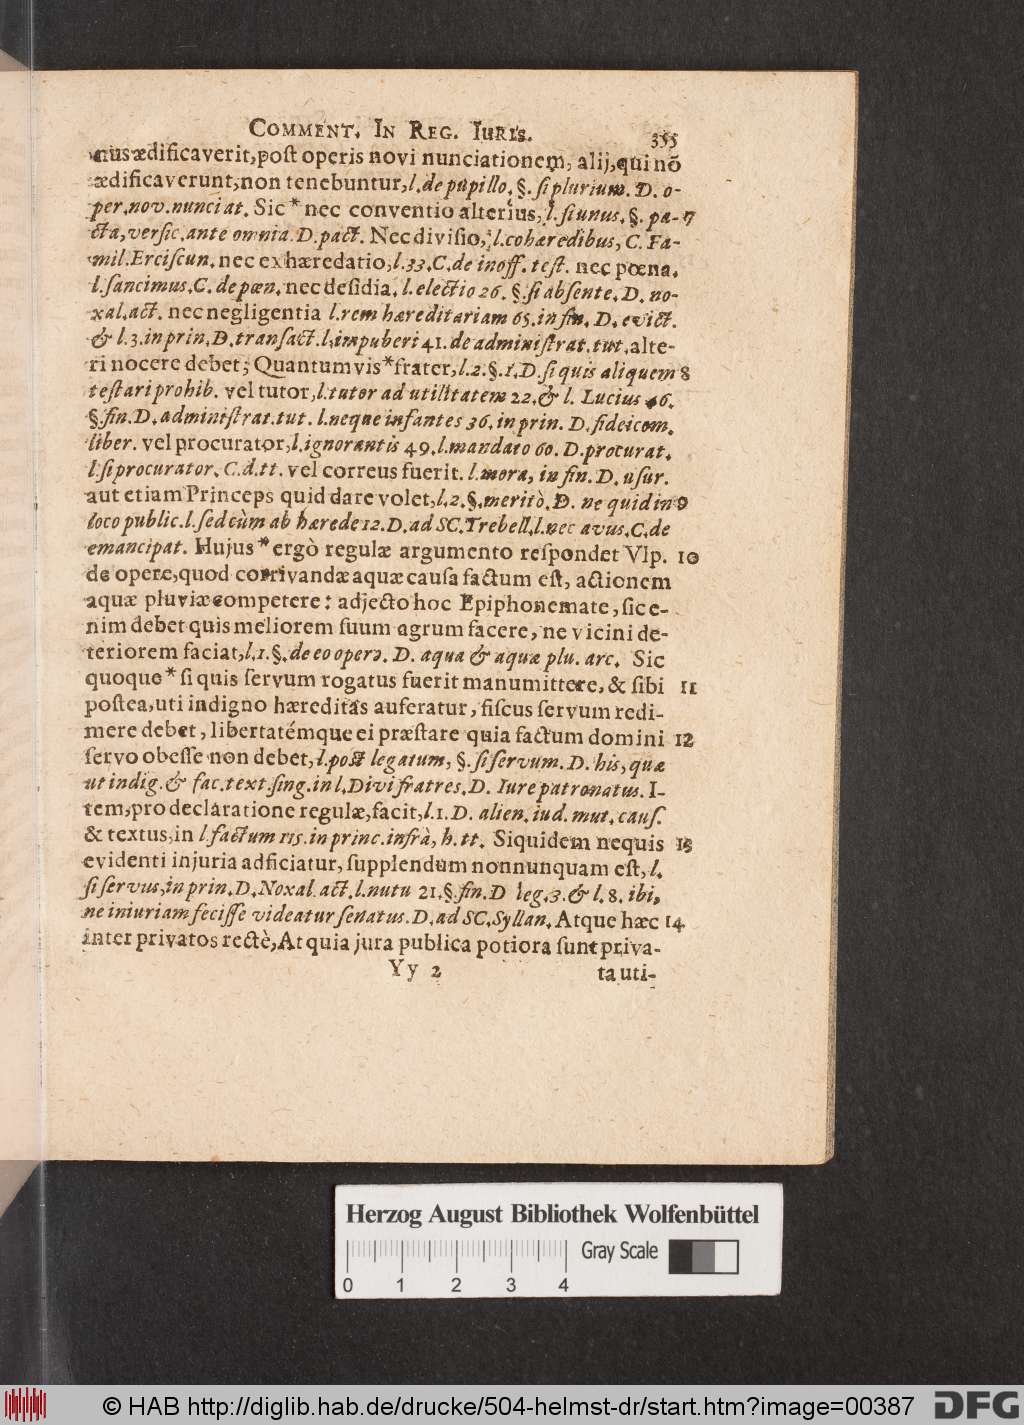 COMMENT. IN REG. IURIS. 355
nus ædificaverit, post operis novi nunciationem, alij, qui nō
ædificaverunt, non tenebuntur, l. de pupillo, §. si plurium. D. o-
per. nov. nunciat. Sic * nec conventio alterius, l. si unus. §. pa- 7
cta, versic. ante omnia. D. pact. Nec divisio, l. cohæredibus, C. Fa-
mil. Erciscun. nec exhæredatio, l. 33. C. de inoff. test. nec pœna.
l. sancimus. C. de pœn. nec desidia. l. electio 26. §. si absente. D. no-
xal. act. nec negligentia l. rem hæreditariam 65. in fin. D. evict.
& l. 3. in prin. D. transact. l. impuberi 41. de administrat. tut. alte-
ri nocere debet; Quantumvis * frater, l. 2. §. 1. D. si quis aliquem 8
testari prohib. vel tutor, l. tutor ad utilitatem 22. & l. Lucius 46.
§. fin. D. administrat. tut. l. neque infantes 36. in prin. D. fideicom.
liber. vel procurator, l. ignorantis 49. l. mandato 60. D. procurat.
l. si procurator. C. d. tt. vel correus fuerit. l. mora, in fin. D. usur.
aut etiam Princeps quid dare volet, l. 2. §. meritò. D. ne quid in 9
loco public. l. sed cùm ab hærede 12. D. ad SC. Trebell. l. nec avus. C. de
emancipat. Hujus * ergò regulæ argumento respondet Vlp. 10
de opere, quod corrivandæ aquæ causa factum est, actionem
aquæ pluviæ competere: adjecto hoc Epiphonemate, sic e-
nim debet quis meliorem suum agrum facere, ne vicini de-
teriorem faciat, l. 1. §. de eo opere. D. aqua & aquæ plu. arc. Sic
quoque * si quis servum rogatus fuerit manumittere, & sibi 11
postea, uti indigno hæreditas auferatur, fiscus servum redi-
mere debet, libertatémque ei præstare quia factum domini 12
servo obesse non debet, l. post legatum, §. si servum. D. his, quæ
ut indig. & fac. text. sing. in l. Divi fratres. D. Iure patronatus. I-
tem, pro declaratione regulæ, facit, l. 1. D. alien. iud. mut. caus.
& textus, in l. factum 115. in princ. infrà, h. tt. Siquidem ne quis 13
evidenti injuria adficiatur, supplendum nonnunquam est, l.
si servus, in prin. D. Noxal. act. l. nutu 21. §. fin. D leg. 3. & l. 8. ibi,
ne iniuriam fecisse videatur senatus. D. ad SC. Syllan. Atque hæc 14
inter privatos rectè, At quia jura publica potiora sunt priva-
Yy 2 ta uti-
Herzog August Bibliothek Wolfenbüttel
Gray Scale
0 1 2 3 4
© HAB http://diglib.hab.de/drucke/504-helmst-dr/start.htm?image=00387
DFG